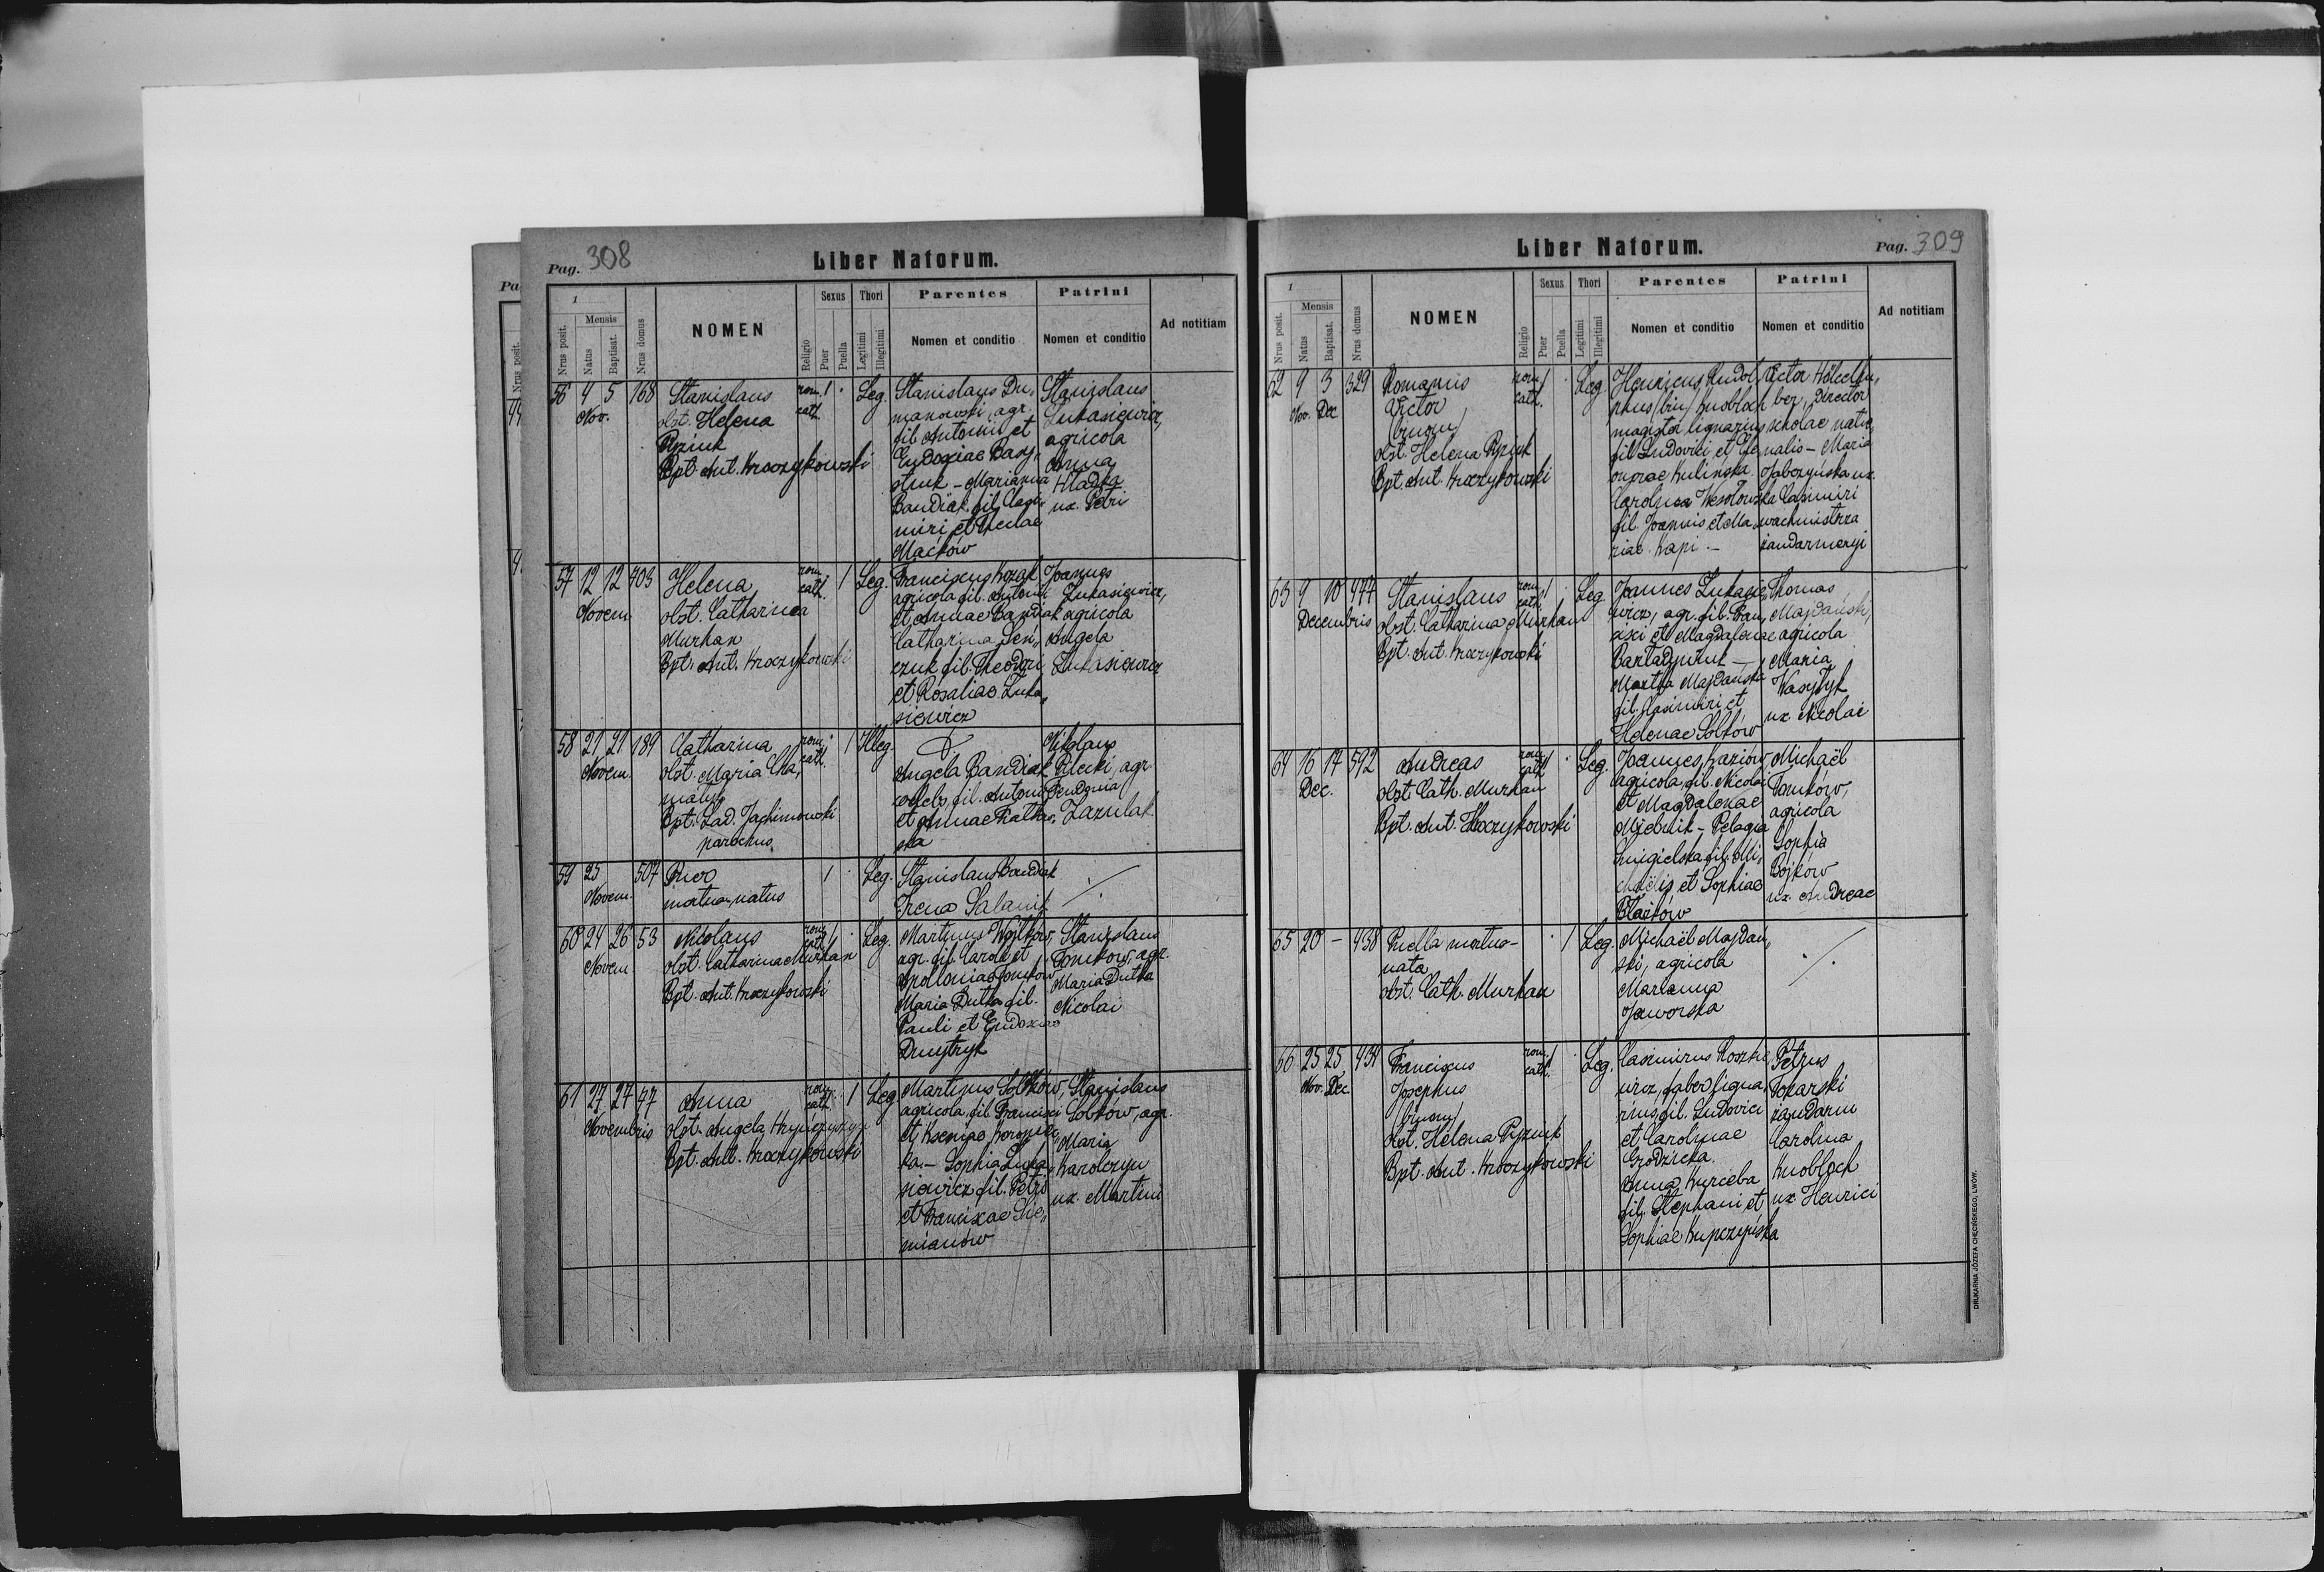 Pag. 308
Liber Natorum.
1
Nrus posit.
Mensis
Natus
Baptisat.
Nrus domus
NOMEN
Religio
Sexus
Puer
Puella
Thori
Legitimi
Illegitimi
Parentes
Nomen et conditio
Patrini
Nomen et conditio
Ad notitiam
56 4 5 168
Nov.
Stanislaus
obst. Helena
Bpt. Ant. Kroczykowski
rom.
cath.
1
Leg.
Stanislaus Du„
manowski, agr.
fil. Antonii et
Eudoxiae
Marianna
Bandiak fil. Casi„
miri et Theclae
Maćków
Stanislaus
Łukasiewicz,
agricola
Anna
Hładka
ux. Petri
57 12 12 403
Novem.
Helena
obst. Catharina
Murhan
Bpt. Ant. Kroczykowski
rom.
cath.
1
Leg.
Franciscus Kozak
agricola fil. Antonii
et Annae Bandiak
Catharina Sen„
czuk fil. Theodori
et Rosaliae Łuka„
siewicz
Joannes
Łukasiewicz,
agricola
Angela
Łukasiewicz
58 21 21 189
Novem.
Catharina
obst. Maria
Bpt. Lad. Jachimowski
parochus
rom.
cath.
1
Illeg.
Angela Bandiak
coelebs, fil. Antonii
et Annae
ska
Nikolaus
Pilecki, agr.
Zazulak
59 25 507
Novem.
Puer
mortuus natus
1
Leg.
Stanislaus Bandiak
Irena Salamik
60 24 26 53
Novem.
Nicolaus
obst. Catharina Murhan
Bpt. Ant. Kroczykowski
rom.
cath.
1
Leg.
Martinus Wojtków,
agr. fil. Caroli et
Apolloniae Tomków
Maria Dutka fil.
Pauli et Eudoxiae
Dmytryk
Stanislaus
Tomków, agr.
Maria Dutka
Nicolai
61 27 27 47
Novembris
Anna
obst. Angela Hrynczyszyn
Bpt. Ant. Kroczykowski
rom.
cath.
1
Leg.
Martinus Sołtków,
agricola, fil. Francisci
et Kseniae
ka. – Sophia Łuka„
siewicz fil. Petri
et Franciscae Sie„
mianów
Stanislaus
Sobków, agr.
Maria
Karolczyn
ux. Martini
Liber Natorum.
Pag. 309
1
Nrus posit.
Mensis
Natus
Baptisat.
Nrus domus
NOMEN
Religio
Sexus
Puer
Puella
Thori
Legitimi
Illegitimi
Parentes
Nomen et conditio
Patrini
Nomen et conditio
Ad notitiam
62 9 3 329
Nov. Dec
Romanus
Victor
(binom)
obst. Helena
Bpt. Ant. Kroczykowski
rom.
cath.
1
Leg
Henricus Rudol„
phus (bin) Knobloch
magister lignarius
fil. Ludovici et Ele„
onorae Kulinska.
Carolina Wesołowska
fil. Joannis et Ma„
riae Kapi. –
Victor
ber, Director
scholae natio„
nalis – Maria
ux.
Casimiri
wachmistrza
żandarmeryi
63 9 10 477
Decembris
Stanislaus
obst. Catharina Murhan
Bpt. Ant. Kroczykowski
rom.
cath.
1
Leg
Joannes Łukasie„
wicz, agr. fil. Fran„
cisci et Magdalenae
Martha Majdańska
fil. Casimiri et
Helenae Sołtków
Thomas
Majdański,
agricola
Maria
Wasylyk
ux. Nicolai
64 16 17 592
Dec.
Andreas
obst. Cath. Murhan
Bpt. Ant. Kroczykowski
rom.
cath.
1
Leg.
Joannes Kaziów,
agricola, fil. Nicolai
et Magdalenae
Pelagia
Śmigielska fil. Mi„
chaëlis et Sophiae
Michaël
Tomków,
agricola
Sophia
Bojków
ux. Andreae
65 20 – 438
Puella mortuo–
nata
obst. Cath. Murhan
1
Leg.
Michaël Majdań„
ski, agricola
Marianna
Jaworska
66 25 25 434
Nov. Dec.
Franciscus
Josephus
(binom)
obst. Helena
Bpt. Ant. Kroczykowski
rom.
cath.
1
Leg.
Casimirus Roszkie„
wicz, faber ligna„
rius, fil. Ludovici
et Carolinae
Grodzicka.
Anna Kurceba
fil. Stephani et
Sophiae
Petrus
Tokarski
żandarm
Carolina
Knobloch
ux. Henrici
DRUKARNIA JÓZEFA CHĘCIŃSKIEGO, LWÓW.